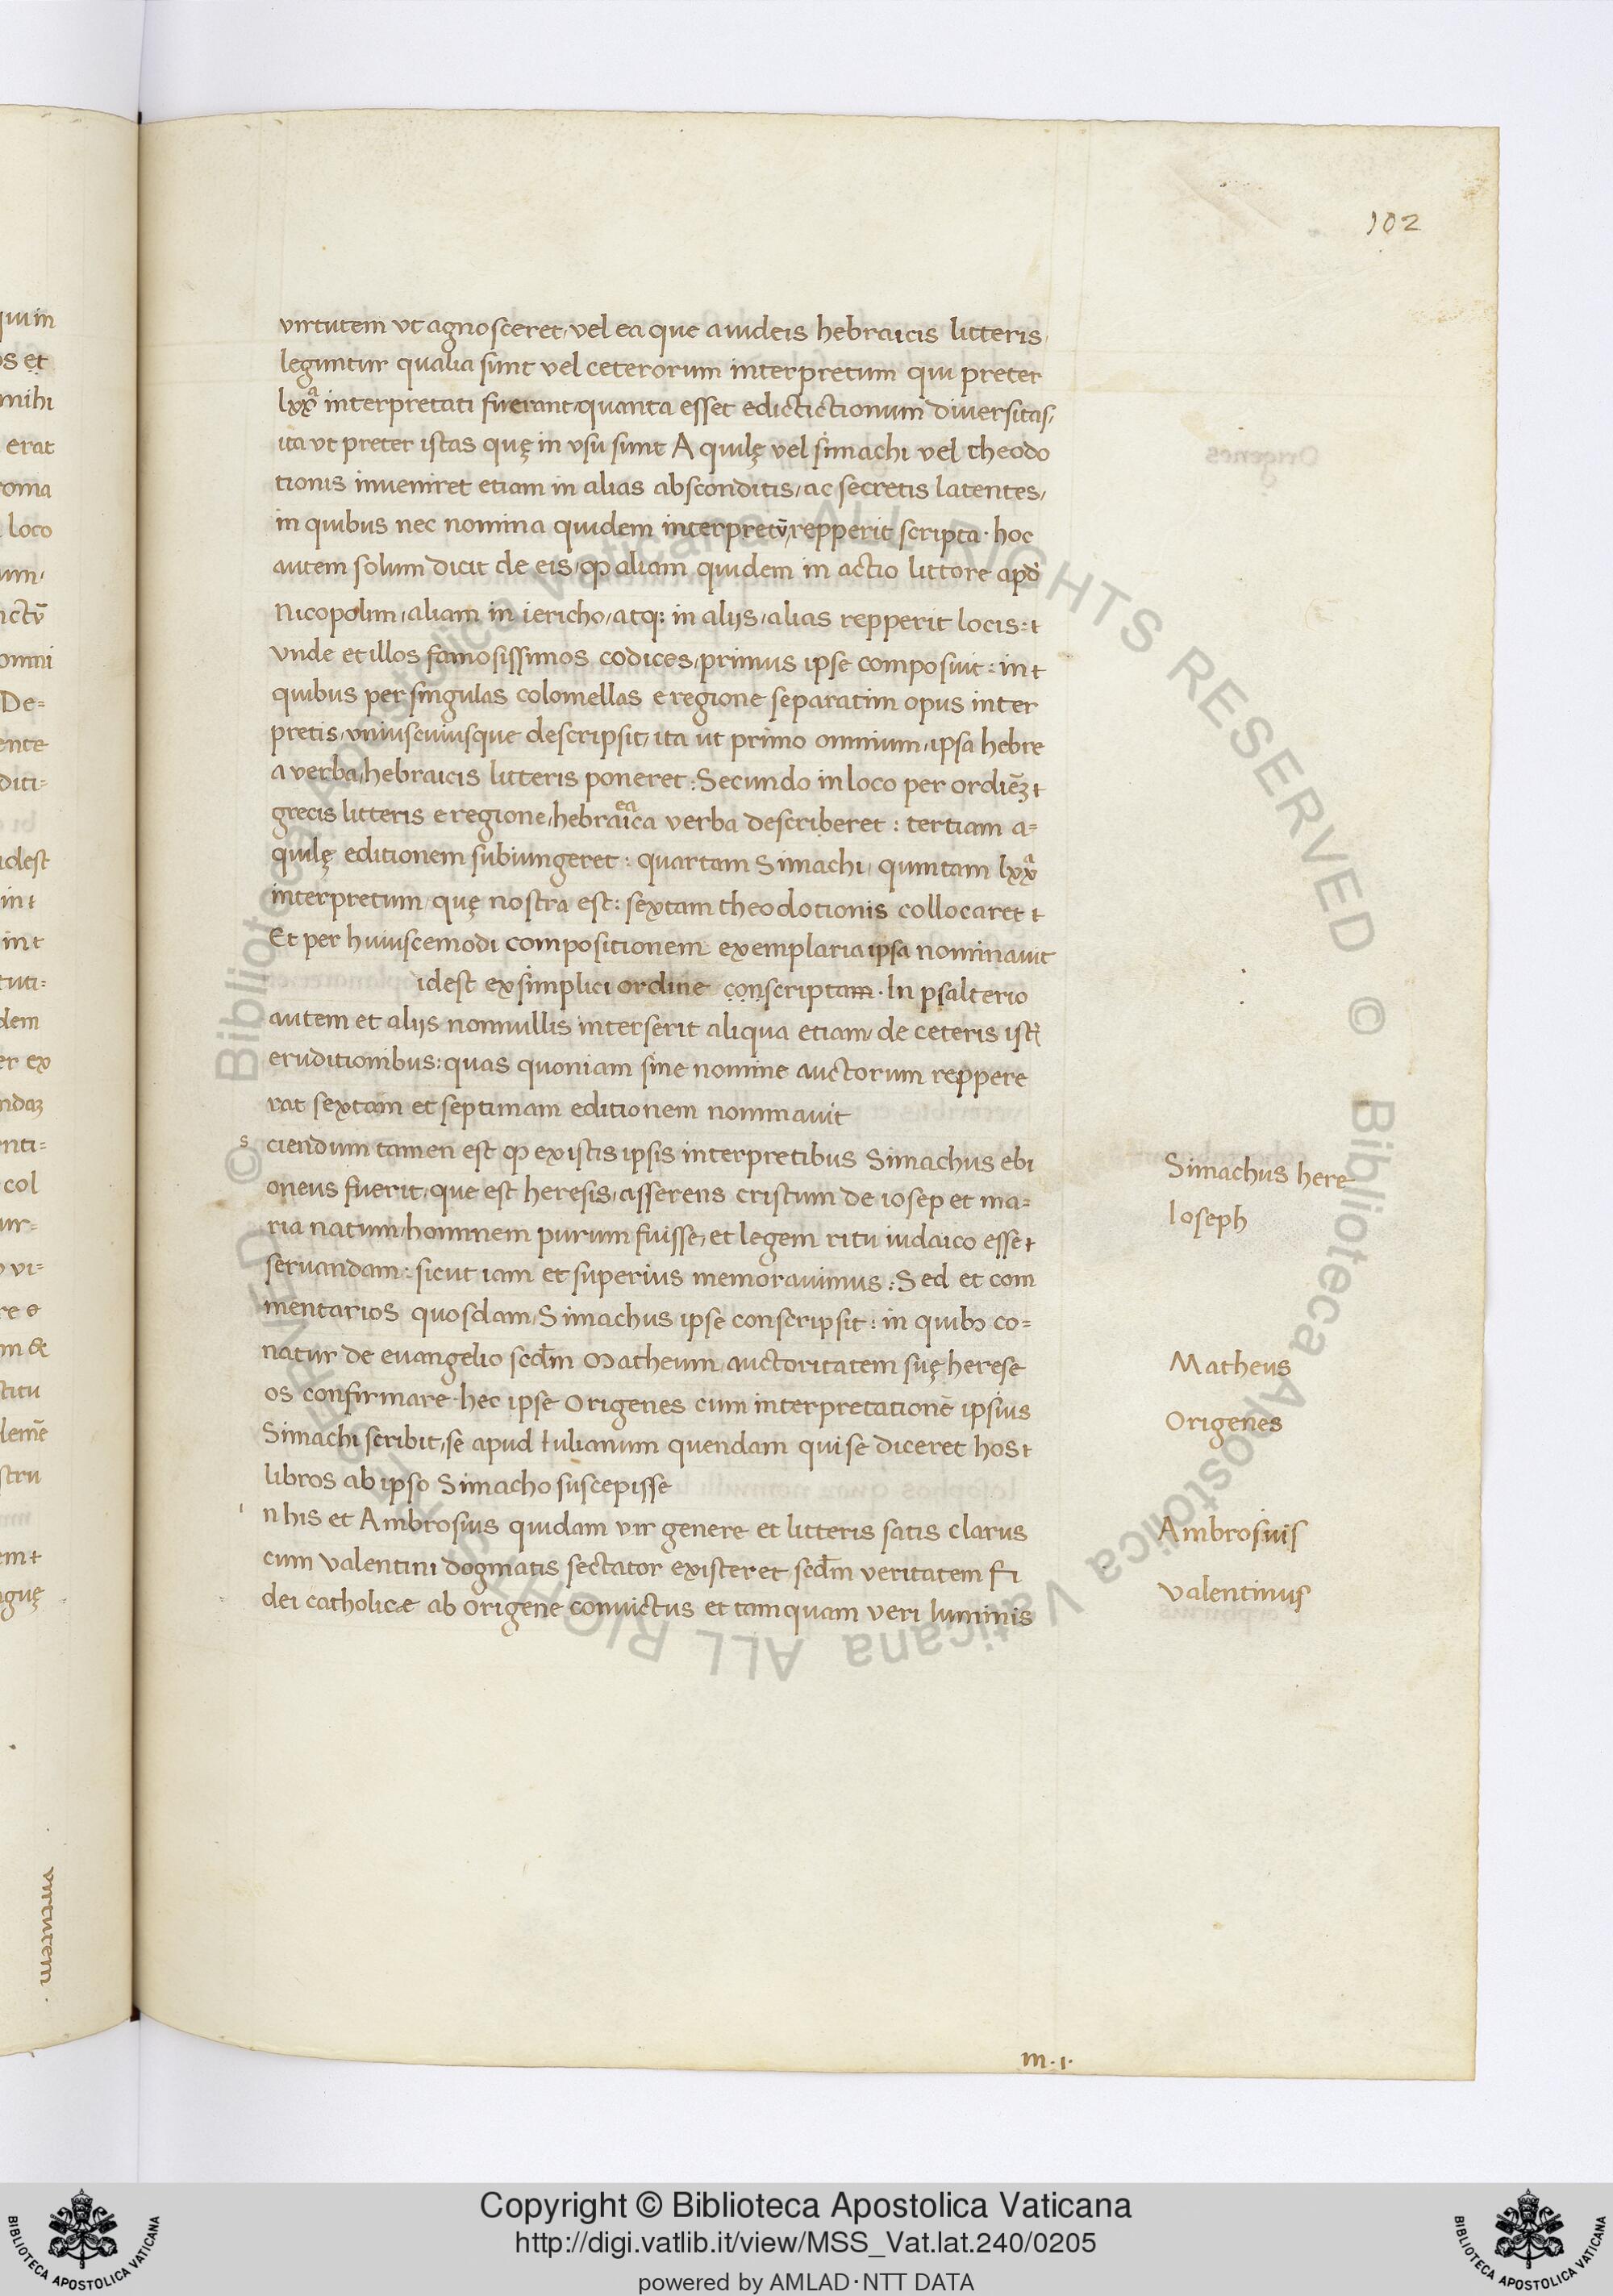 102
virtutem vt agnosceret/ vel ea que a iudeis hebraicis litteris/
leguntur qualia sunt vel ceterorum interpretum qui preter
lxxª interpretati fuerant/ quanta esset edictictionum diuersitas/
ita vt preter istas quę in vsu sunt Aquilę vel simachi vel theodo
tionis inueniret etiam in alias absconditis/ ac secretis latentes/
in quibus nec nomina quidem interpretū/ repperit scripta · hoc
autem solum dicit de eis/ ꝙ aliam quidem in actio littore apď
Nicopolim/ aliam in iericho/ atq; in alijs/ alias repperit locis:
vnde et illos famosissimos codices/ primus ipse composuit: in
quibus per singulas colomellas e regione separatim opus inter
pretis/ vniuscuiusque descripsit/ ita ut primo omnium/ ipsa hebre
a verba/ hebraicis litteris poneret: Secundo in loco per ordiēꝫ
grecis litteris e regione/ hebraica verba describeret: tertiam a=
ea
quilę editionem subiungeret: quartam Simachi/ quintam lxxª
interpretum/ quę nostra est: sextam theodotionis collocaret
Et per huiuscemodi compositionem exemplaria ipsa nominauit
idest ex simplici ordine conscriptam · In psalterio
autem et alijs nonnullis interserit aliqua etiam/ de ceteris
eruditionibus: quas quoniam sine nomine auctorum reppere
rat sextam et septimam editionem nominauit
s ciendum tamen est ꝙ ex istis ipsis interpretibus Simachus ebi
oneus fuerit/ que est heresis/ asserens cristum de iosep et ma=
ria natum/ hominem purum fuisse/ et legem ritu iudaico esse
seruandam: sicut iam et superius memorauimus: Sed et com
mentarios quosdam/ Simachus ipse conscripsit: in quibꝫ co=
natur de euangelio scd̄m Matheum/ auctoritatem suę herese
os confirmare · hec ipse Origenes cum interpretationē ipsius
Simachi scribit/ se apud Iulianum quendam qui se diceret hos
libros ab ipso Simacho suscepisse
i n his et Ambrosius quidam vir genere et litteris satis clarus
cum valentini dogmatis sectator existeret scd̄m veritatem fi
dei catholicæ ab origene conuictus et tamquam veri luminis
Simachus here
Ioseph
Matheus
Origenes
Ambrosius
valentinus
m · 1 ·
virtutem
© Biblioteca Apostolica Vaticana ALL RIGHTS RESERVED © Biblioteca Apostolica Vaticana ALL RIGHTS RESERVED
Copyright © Biblioteca Apostolica Vaticana
http://digi.vatlib.it/view/MSS_Vat.lat.240/0205
powered by AMLAD·NTT DATA
BIBLIOTECA APOSTOLICA VATICANA
BIBLIOTECA APOSTOLICA VATICANA